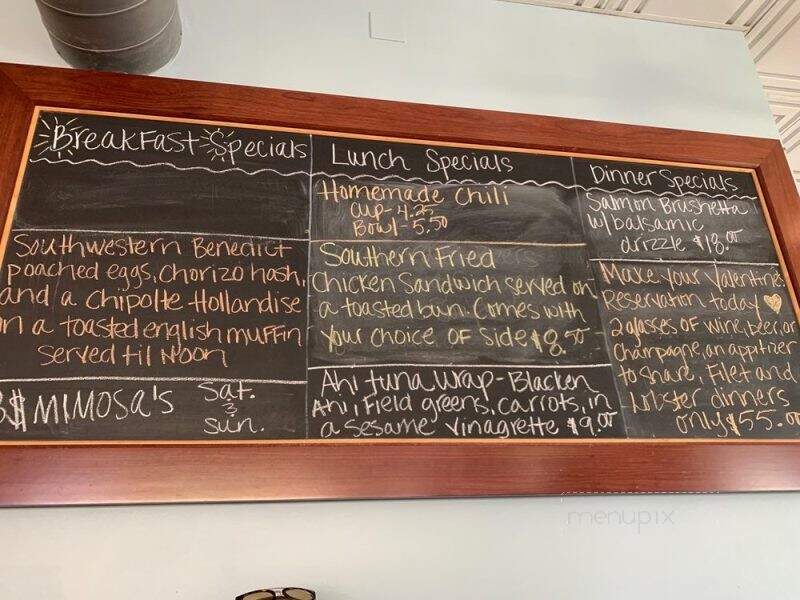 Breakfast Specials
Southwestern Benedict
poached eggs, chorizo hash,
and a chipolte Hollandise
n a toasted english muffin
served til Noon
3$ MIMOSA's Sat.
&
sun.
Lunch Specials
Homemade chili
cup - 4.25
Bowl - 5.50
Southern Fried
Chicken Sandwich served on
a toasted bun. Comes with
your choice of side $8.50
Ahi tuna wrap - Blacken
Ahi, Field greens, carrots, in
a sesame vinagrette $9.00
Dinner Specials
Salmon Brushetta
w/ balsamic
drizzle $13.00
Make your Valentines
Reservation today
2 glasses of wine, beer, or
champagne, an appitizer
to share, Filet and
lobster dinners
only $55.00
menupix